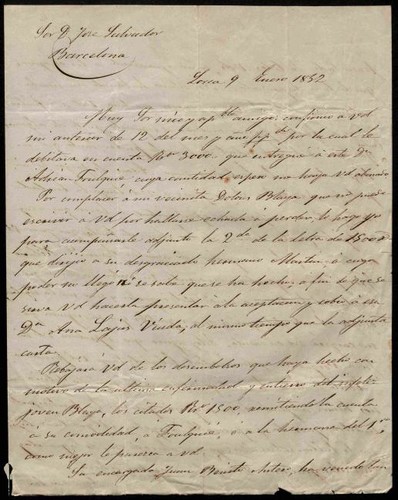 Sor D. Jose Salvador
Barcelona
Lorca 9 Enero 1852
Muy Sor mio y apble amigo: confirmo a vd
mi anterior de 12 del mes y año ppdo por la cual le
debitava en cuenta Rvn 3000 que entregué á este Dn
Adrian Foulquié cuya cantidad espero no haya vd
Por complacer á mi vecinita Dolores Blaya que no puede
escrivir á Vd por hallarse echada á perder, lo hago yo
para acompañarle adjunta la 2da de la letra de 1500 R
que dirijio a su desgraciado hermano Martin á cuyo
poder no llegó ni se sabe que se ha hecho, a fin de que se
sirva vd hacerla presentar a la aceptacion y cobro á esa
Da Ana Viuda, al mismo tiempo que la adjunta
carta.
Rebajara Vd de los desembolsos que haya hecho con
motivo de la ultima enfermedad y entierro del
joven Blaya, los citados Rvn 1500, remitiendo la cuenta
a su comodidad, á Foulquié, ó a la hermana del
como mejor le parezca a vd
Su encargado Juan Benito ha